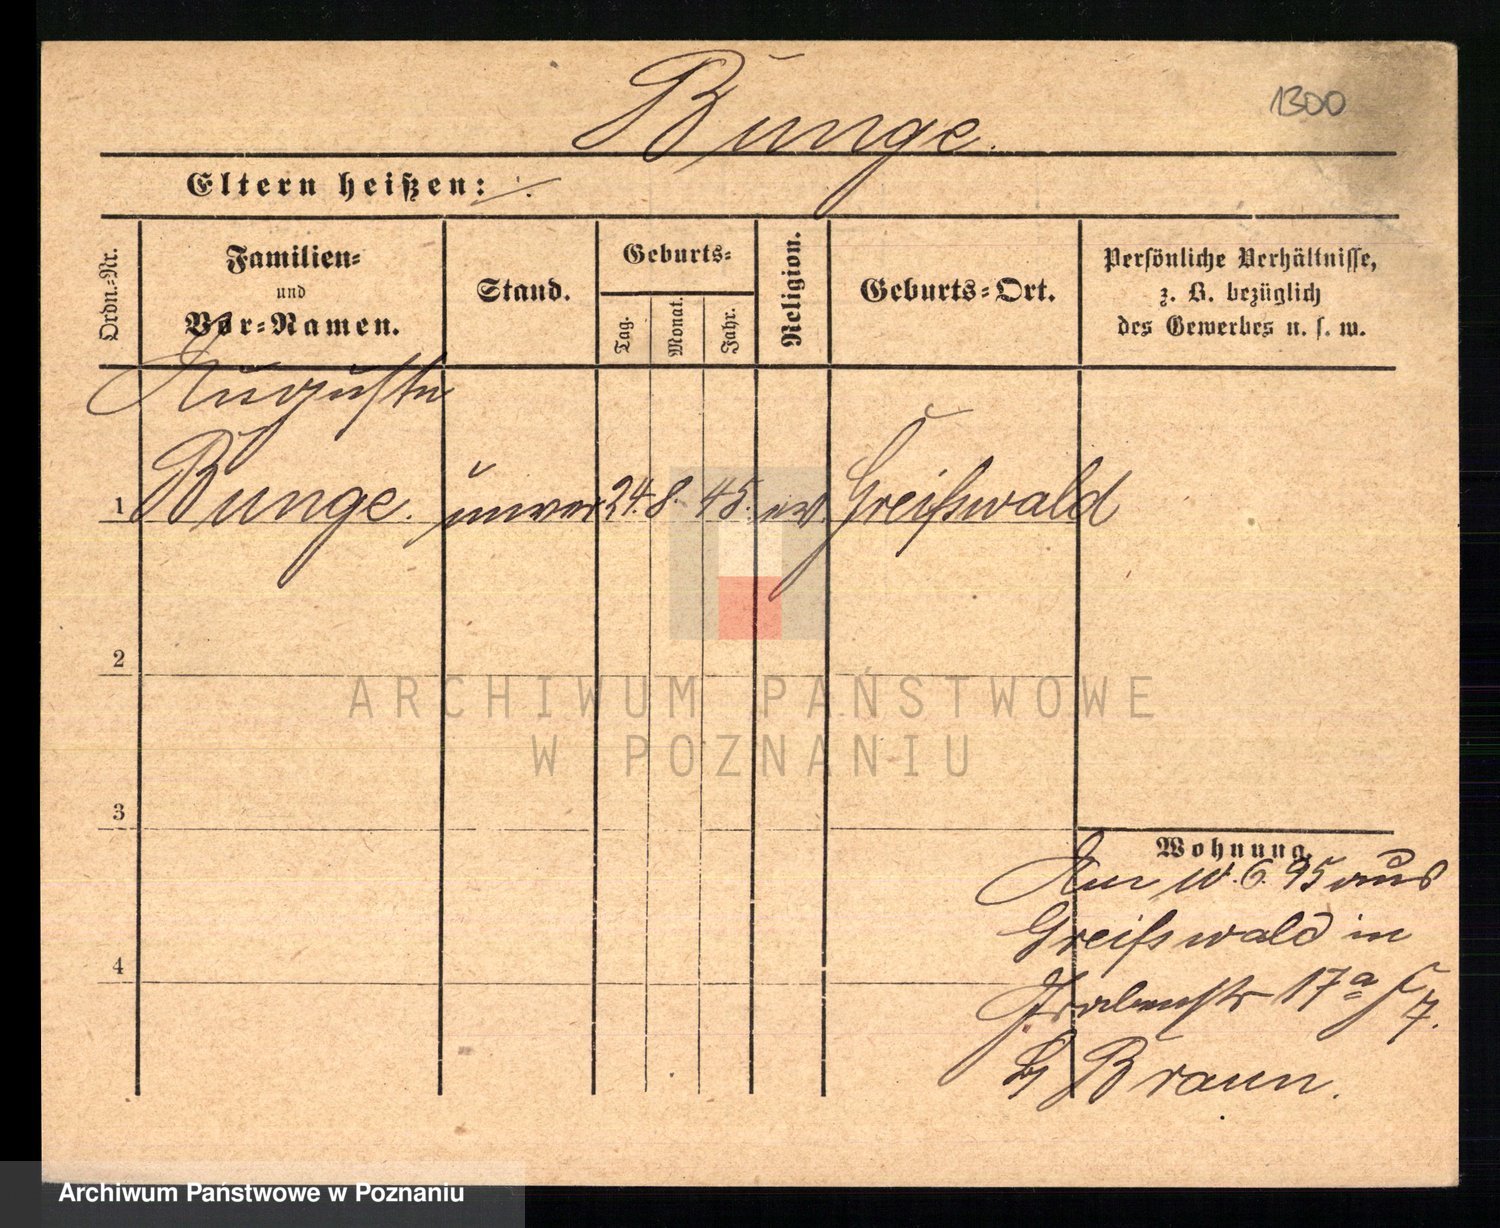 Bunge.
1300
Eltern heißen:
Ordn.-Nr.
Familien-
und
Vor-Namen.
Stand.
Geburts-
Tag.
Monat.
Jahr.
Religion.
Geburts-Ort.
Persönliche Verhältnisse,
z. B. bezüglich
des Gewerbes u. s. w.
Auguste
1 Bunge. unver 24. 8. 45. ev. Greifswald
2
3
4
Wohnung.
Am 10. 6. 95 aus
Greifswald in
Grabenstr 17a
b Braun.
ARCHIWUM PAŃSTWOWE
W POZNANIU
Archiwum Państwowe w Poznaniu